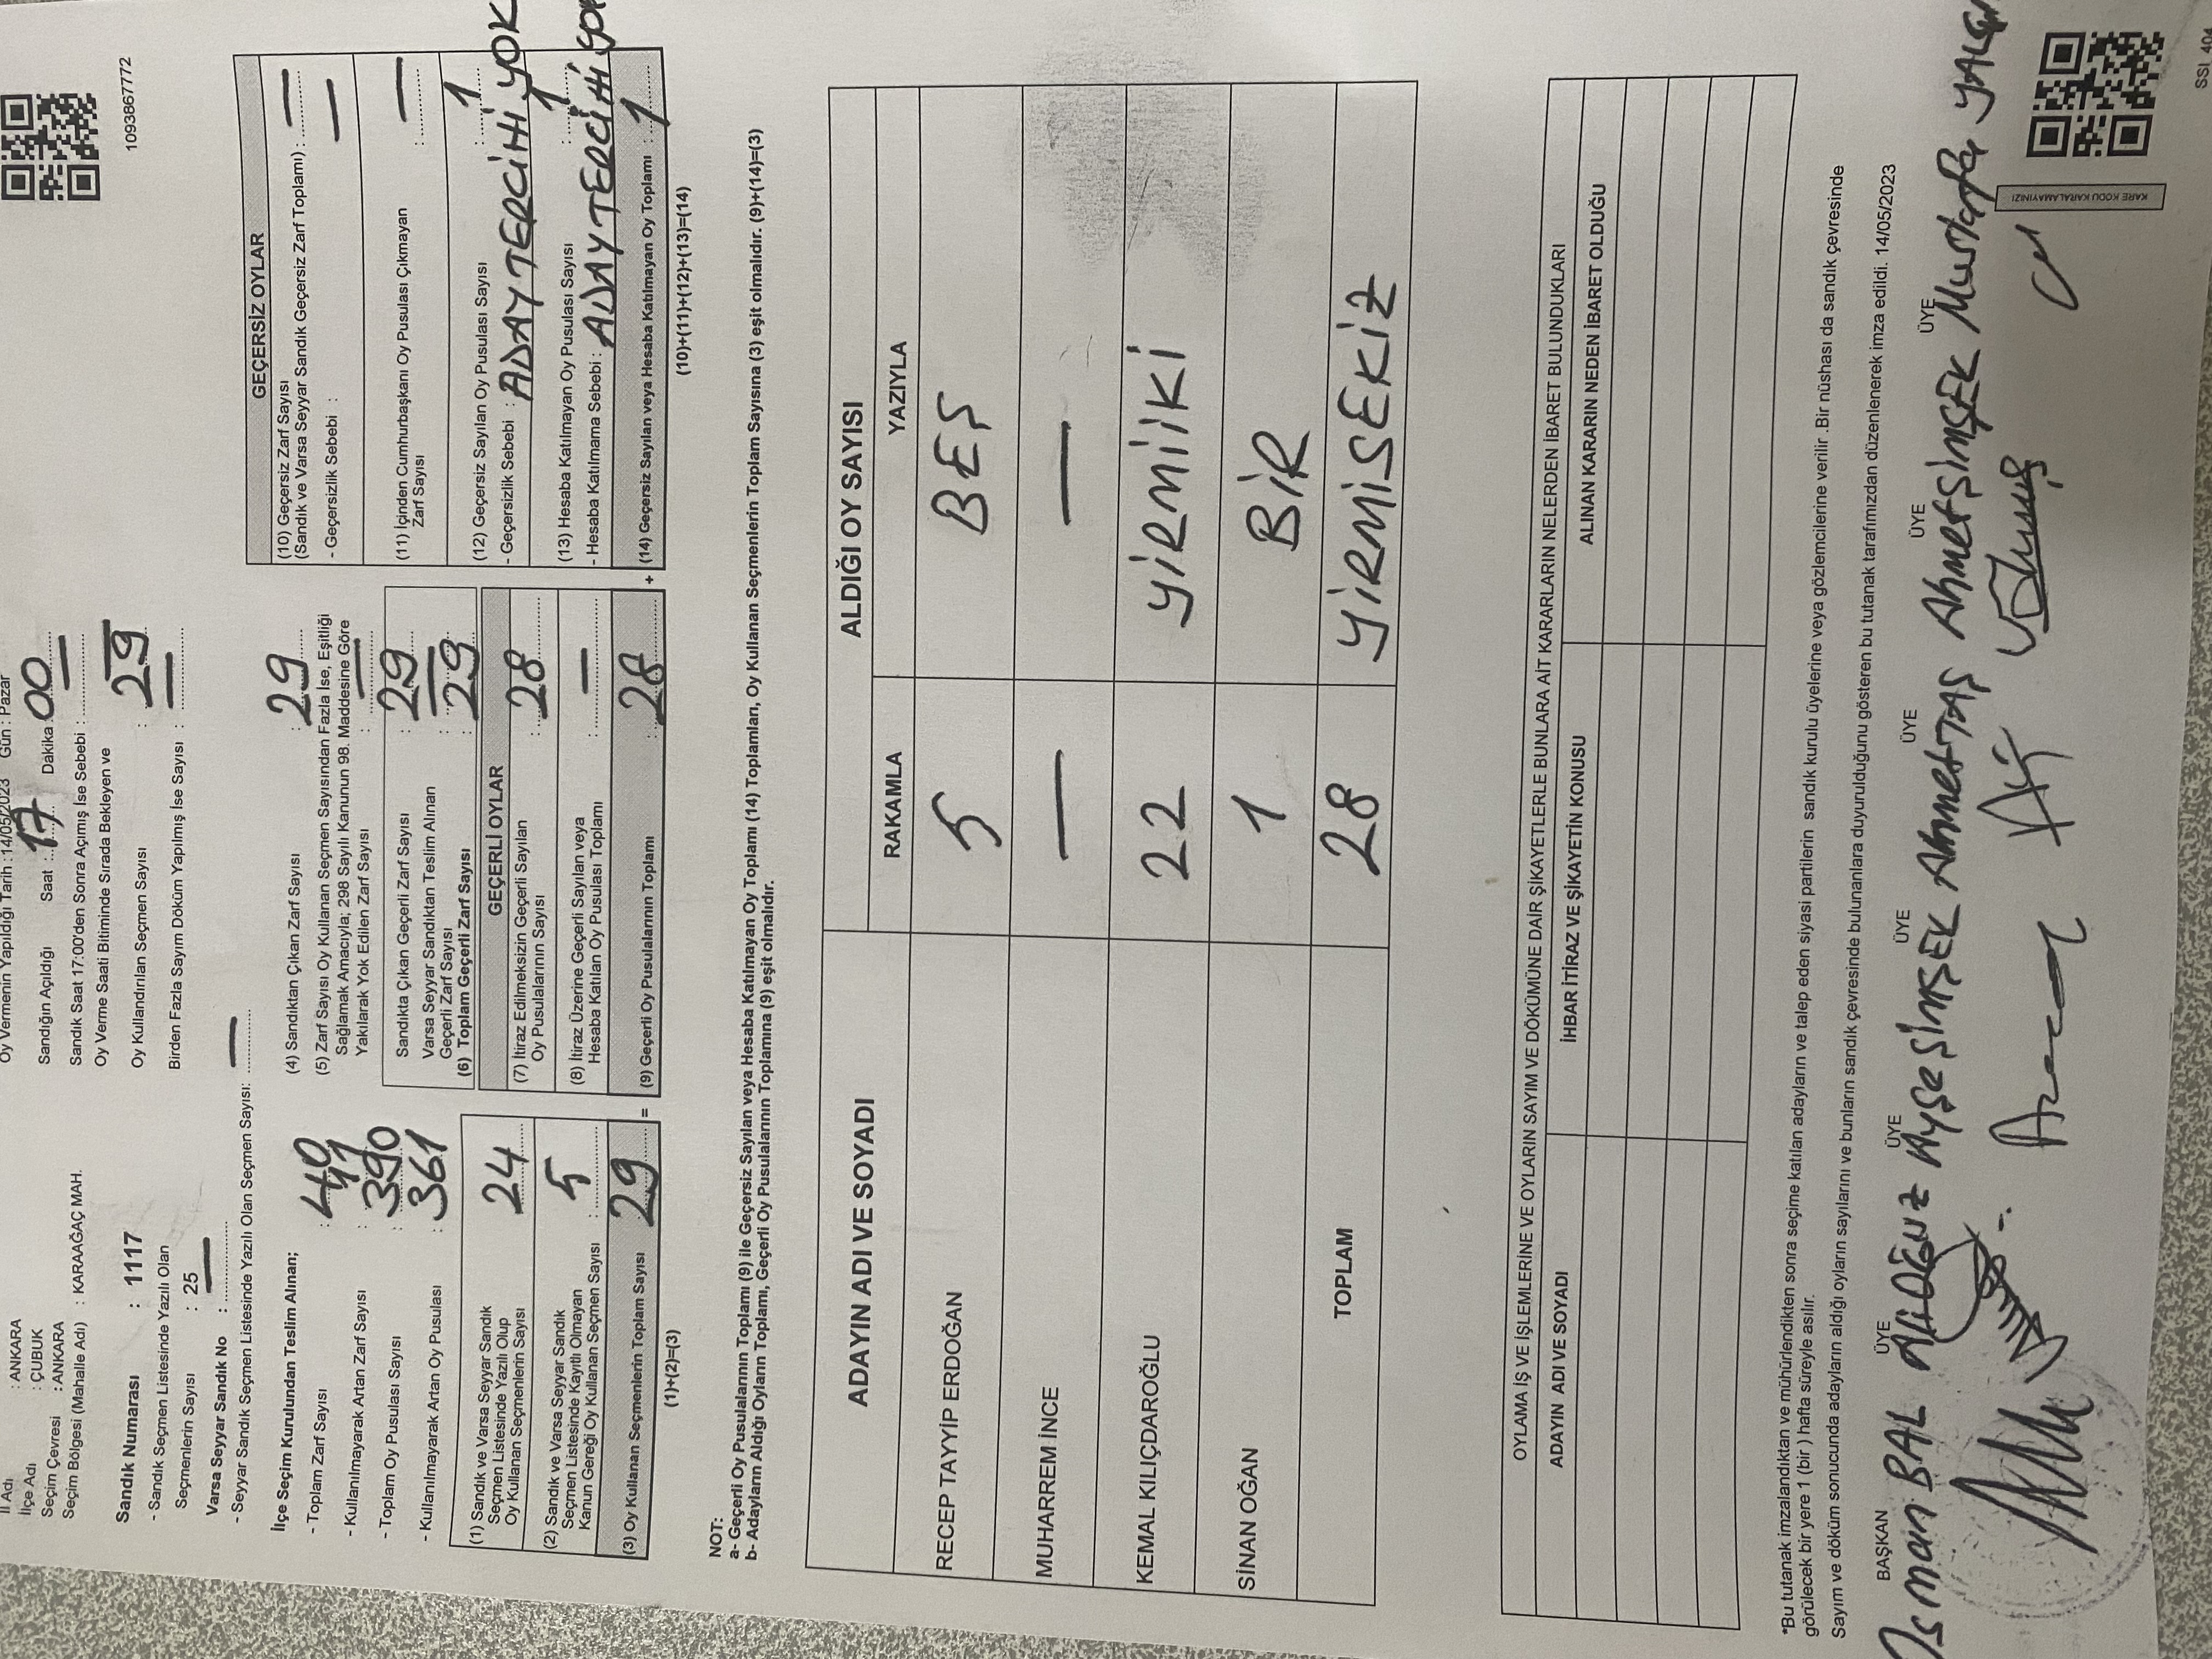 İl Adı : ANKARA
İlçe Adı : ÇUBUK
Seçim Çevresi : ANKARA
Seçim Bölgesi (Mahalle Adı) : KARAAĞAÇ MAH.
Sandık Numarası : 1117
- Sandık Seçmen Listesinde Yazılı Olan
Seçmenlerin Sayısı : 25
Varsa Seyyar Sandık No : —
- Seyyar Sandık Seçmen Listesinde Yazılı Olan Seçmen Sayısı: —
Oy Vermenin Yapıldığı Tarih : 14/05/2023 Gün : Pazar
Sandığın Açıldığı Saat : 17 Dakika : 00
Sandık Saat 17:00'den Sonra Açımış İse Sebebi : —
Oy Verme Saati Bitiminde Sırada Bekleyen ve
Oy Kullandırılan Seçmen Sayısı : 29
Birden Fazla Sayım Döküm Yapılmış İse Sayısı : —
1093867772
İlçe Seçim Kurulundan Teslim Alınan;
- Toplam Zarf Sayısı : 40
- Kullanılmayarak Artan Zarf Sayısı : 11
- Toplam Oy Pusulası Sayısı : 390
- Kullanılmayarak Artan Oy Pusulası : 361
(1) Sandık ve Varsa Seyyar Sandık
Seçmen Listesinde Yazılı Olup
Oy Kullanan Seçmenlerin Sayısı 24
(2) Sandık ve Varsa Seyyar Sandık
Seçmen Listesinde Kayıtlı Olmayan
Kanun Gereği Oy Kullanan Seçmen Sayısı : 5
(3) Oy Kullanan Seçmenlerin Toplam Sayısı 29 =
(1)+(2)=(3)
(4) Sandıktan Çıkan Zarf Sayısı : 29
(5) Zarf Sayısı Oy Kullanan Seçmen Sayısından Fazla İse, Eşitliği
Sağlamak Amacıyla; 298 Sayılı Kanunun 98. Maddesine Göre
Yakılarak Yok Edilen Zarf Sayısı : —
Sandıkta Çıkan Geçerli Zarf Sayısı : 29
Varsa Seyyar Sandıktan Teslim Alınan
Geçerli Zarf Sayısı : —
(6) Toplam Geçerli Zarf Sayısı : 29
GEÇERLİ OYLAR
(7) İtiraz Edilmeksizin Geçerli Sayılan
Oy Pusulalarının Sayısı : 28
(8) İtiraz Üzerine Geçerli Sayılan veya
Hesaba Katılan Oy Pusulası Toplamı : —
(9) Geçerli Oy Pusulalarının Toplamı : 28 +
GEÇERSİZ OYLAR
(10) Geçersiz Zarf Sayısı
(Sandık ve Varsa Seyyar Sandık Geçersiz Zarf Toplamı) : —
- Geçersizlik Sebebi : —
(11) İçinden Cumhurbaşkanı Oy Pusulası Çıkmayan
Zarf Sayısı : —
(12) Geçersiz Sayılan Oy Pusulası Sayısı : 1
- Geçersizlik Sebebi : ADAY TERCİHİ YOK
(13) Hesaba Katılmayan Oy Pusulası Sayısı : 1
- Hesaba Katılmama Sebebi : ADAY TERCİHİ YOK
(14) Geçersiz Sayılan veya Hesaba Katılmayan Oy Toplamı : 1
(10)+(11)+(12)+(13)=(14)
NOT:
a- Geçerli Oy Pusulalarının Toplamı (9) ile Geçersiz Sayılan veya Hesaba Katılmayan Oy Toplamı (14) Toplamları, Oy Kullanan Seçmenlerin Toplam Sayısına (3) eşit olmalıdır. (9)+(14)=(3)
b- Adayların Aldığı Oyların Toplamı, Geçerli Oy Pusulalarının Toplamına (9) eşit olmalıdır.
ADAYIN ADI VE SOYADI ALDIĞI OY SAYISI
RAKAMLA YAZIYLA
RECEP TAYYİP ERDOĞAN 5 BEŞ
MUHARREM İNCE — —
KEMAL KILIÇDAROĞLU 22 YİRMİİKİ
SİNAN OĞAN 1 BİR
TOPLAM 28 YİRMİSEKİZ
OYLAMA İŞ VE İŞLEMLERİNE VE OYLARIN SAYIM VE DÖKÜMÜNE DAİR ŞİKAYETLERLE BUNLARA AİT KARARLARIN NELERDEN İBARET BULUNDUKLARI
ADAYIN ADI VE SOYADI İHBAR İTİRAZ VE ŞİKAYETİN KONUSU ALINAN KARARIN NEDEN İBARET OLDUĞU
*Bu tutanak imzalandıktan ve mühürlendikten sonra seçime katılan adayların ve talep eden siyasi partilerin sandık kurulu üyelerine veya gözlemcilerine verilir .Bir nüshası da sandık çevresinde
görülecek bir yere 1 (bir ) hafta süreyle asılır.
Sayım ve döküm sonucunda adayların aldığı oyların sayılarını ve bunların sandık çevresinde bulunanlara duyurulduğunu gösteren bu tutanak tarafımızdan düzenlenerek imza edildi. 14/05/2023
BAŞKAN ÜYE ÜYE ÜYE ÜYE ÜYE ÜYE
Osman BAL Ali OĞUZ Ayşe ŞİMŞEK Ahmet TAŞ Ahmet ŞİMŞEK Mustafa
KARE KODU KARALAMAYINIZ!
SSI 404